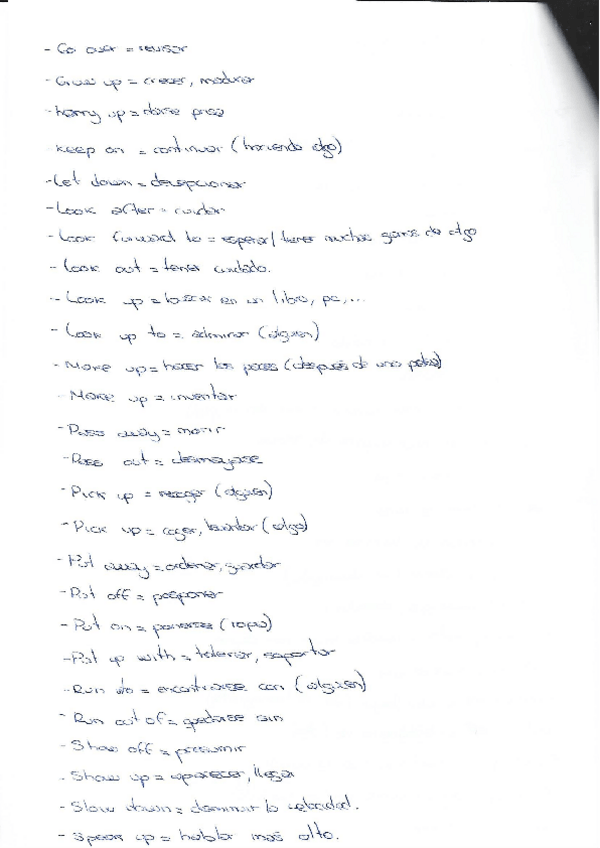 - Go over = revisar
- Grow up = crecer, madurar
- horry up = darse prisa
- Keep on = continuar (haciendo algo)
- Let down = decepcionar
- Look after = cuidar
- Look forward to = esperar / tener muchas ganas de algo
- Look out = tener cuidado.
- Look up = buscar en un libro, pc,...
- Look up to = admirar (alguien)
- Make up = hacer las paces (después de una pelea)
- Make up = inventar
- Pass away = morir
- Pass out = desmayarse
- Pick up = recoger (alguien)
- Pick up = coger, levantar (algo)
- Put away = ordenar, guardar
- Put off = posponer
- Put on = ponerse (ropa)
- Put up with = tolerar, soportar
- Run into = encontrarse con (alguien)
- Run out of = quedarse sin
- Show off = presumir
- Show up = aparecer, llegar
- Slow down = disminuir la velocidad.
- Speak up = hablar más alto.